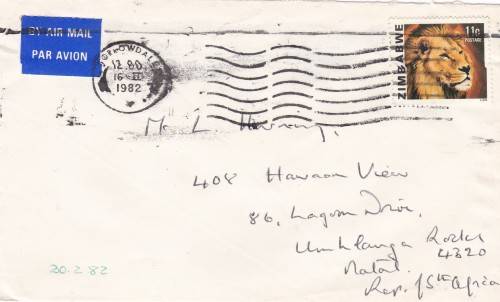 BY AIR MAIL
PAR AVION
12.00
16 II
1982
11c
POSTAGE
ZIMBABWE
Mr L
408 Hawaan View
86, Lagoon Drive,
Umhlanga Rocks
4320
Natal.
Rep. of Sth Africa
20.2.82